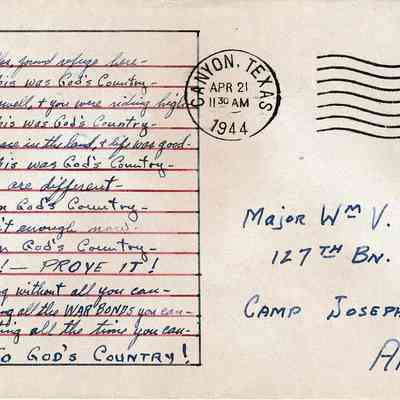 found refuge here-
is was God's Country-
well, & you were riding high
is was God's Country-
in the land, & life was good-
is was God's Country-
are different-
God's Country-
't enough now-
God's Country-
! - PROVE IT !
without all you can-
all the WAR BONDS you can-
all the time you can-
TO GOD'S COUNTRY!
CANYON, TEXAS
APR 21
11 30 AM
1944
Major Wm V.
127TH BN.
CAMP JOSEPH